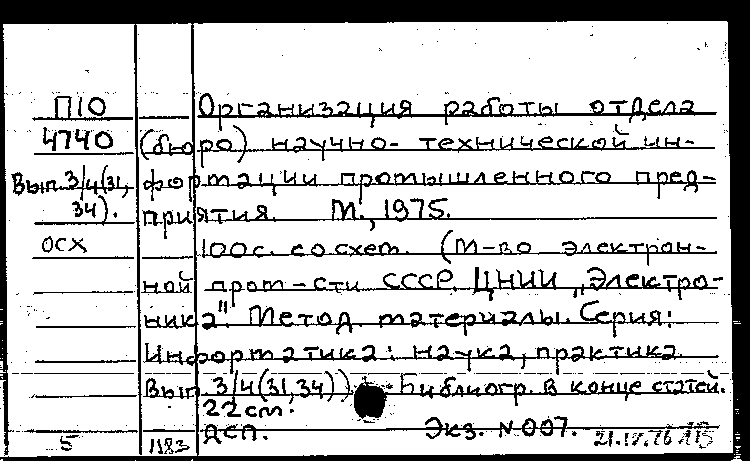 П10 Организация работы отдела
4740 (бюро) научно-технической ин-
Вып. 3/4(31, формации промышленного пред-
34). приятия. М., 1975.
осх 100с. со схем. (М-во электрон-
ной пром-сти СССР. ЦНИИ „Электро-
ника". Метод. материалы. Серия:
Информатика: наука, практика.
Вып. 3/4(31,34)) Библиогр. в конце статей.
22см.
ДСП. Экз. №007. 21.IV.76
5 1183